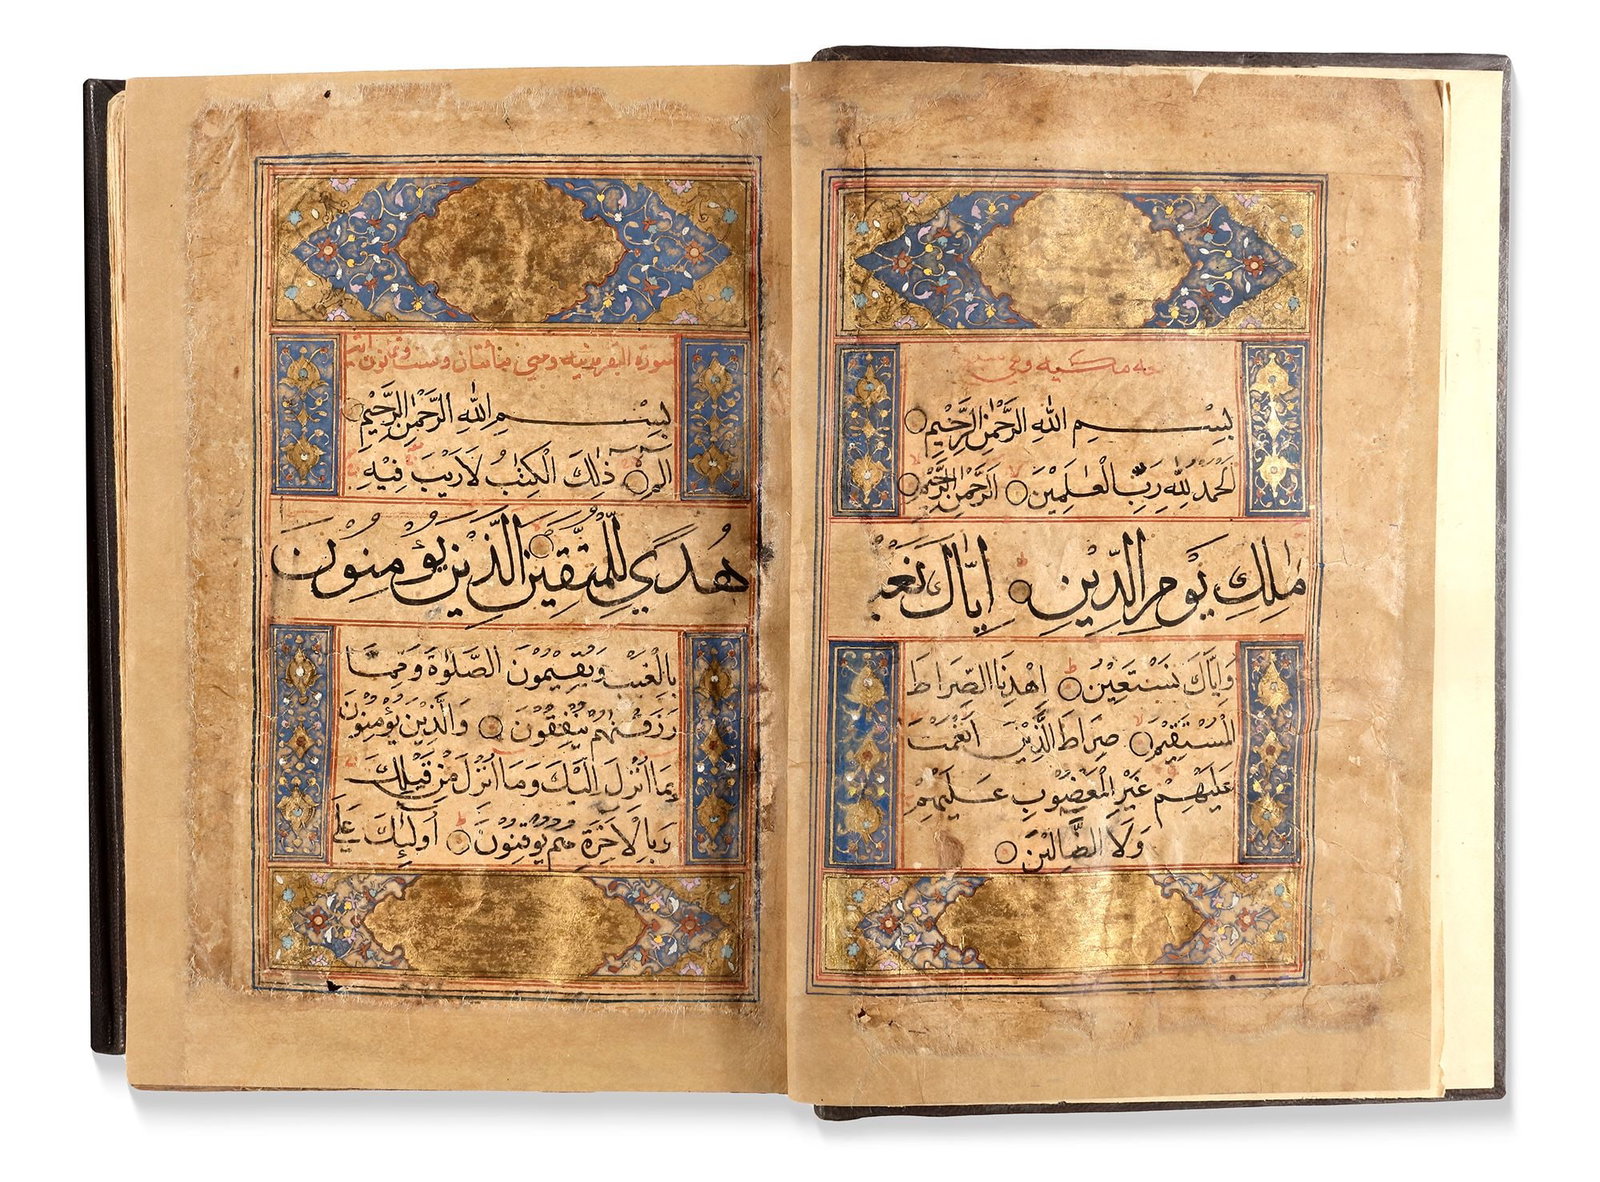 مكية وهي سبع
بِسْمِ اللهِ الرَّحْمٰنِ الرَّحِيْمِ
اَلْحَمْدُ لِلّٰهِ رَبِّ الْعٰلَمِيْنَ الرَّحْمٰنِ الرَّحِيْمِ
مٰلِكِ يَوْمِ الدِّيْنِ اِيَّاكَ نَعْبُ
وَاِيَّاكَ نَسْتَعِيْنُ اِهْدِنَا الصِّرَاطَ
الْمُسْتَقِيْمَ صِرَاطَ الَّذِيْنَ اَنْعَمْتَ
عَلَيْهِمْ غَيْرِ الْمَغْضُوْبِ عَلَيْهِمْ
وَلَا الضَّالِّيْنَ
سورة البقر مدنية وهي مأتان وست وثمانون آية
بِسْمِ اللهِ الرَّحْمٰنِ الرَّحِيْمِ
الٓمٓ ذٰلِكَ الْكِتٰبُ لَا رَيْبَ فِيْهِ
هُدًي لِّلْمُتَّقِيْنَ الَّذِيْنَ يُؤْمِنُوْنَ
بِالْغَيْبِ وَيُقِيْمُوْنَ الصَّلٰوةَ وَمِمَّا
رَزَقْنٰهُمْ يُنْفِقُوْنَ وَالَّذِيْنَ يُؤْمِنُوْنَ
بِمَا اُنْزِلَ اِلَيْكَ وَمَا اُنْزِلَ مِنْ قَبْلِكَ
وَبِالْاٰخِرَةِ هُمْ يُوْقِنُوْنَ اُولٰٓئِكَ عَلٰي